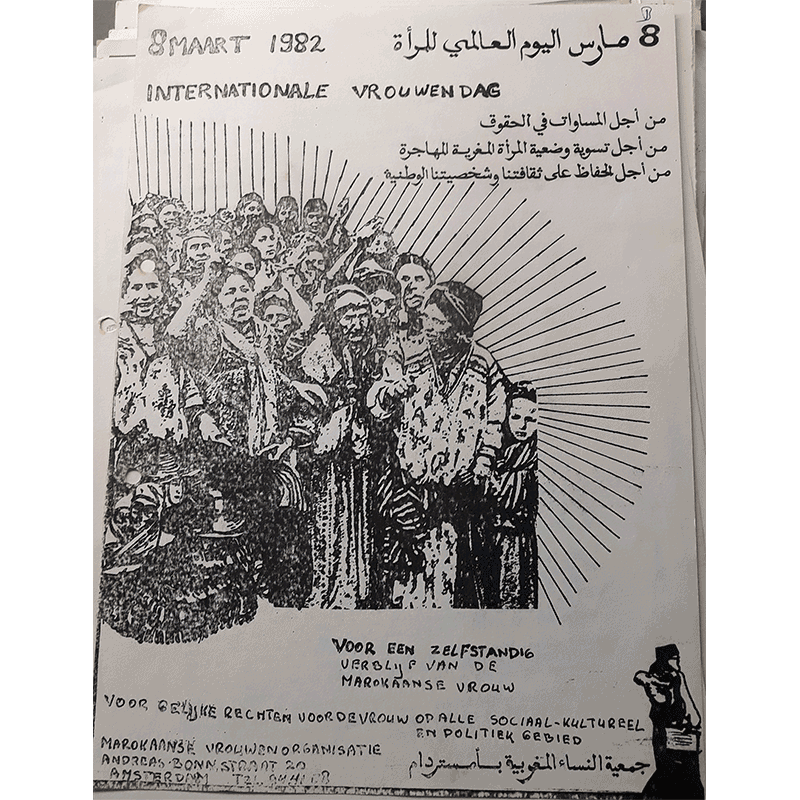 8 MAART 1982
8 مارس اليوم العالمي للمرأة
INTERNATIONALE VROUWENDAG
من أجل المساوات في الحقوق
من أجل تسوية وضعية المرأة المغربية المهاجرة
من أجل الحفاظ على ثقافتنا وشخصيتنا الوطنية
VOOR EEN ZELFSTANDIG
VERBLIJF VAN DE
MAROKAANSE VROUW
VOOR GELIJKE RECHTEN VOOR DE VROUW OP ALLE SOCIAAL-KULTUREEL
EN POLITIEK GEBIED
MAROKAANSE VROUWENORGANISATIE
ANDREAS-BONN.STRAAT 20
AMSTERDAM
جمعية النساء المغربية بأمستردام